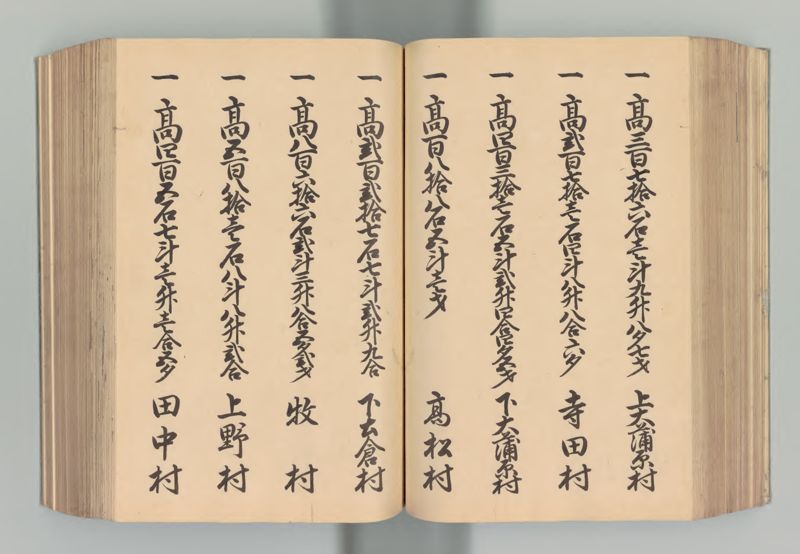 一高三百七拾六石壱斗九升八夕七才 上大蒲原村
一高弐百七拾壱石四斗八升八合六夕 寺田村
一高四百三拾壱石五斗弐升四合四夕五才 下大蒲原村
一高百八拾八石五斗壱才 高松村
一高弐百弐拾七石七斗弐升九合 下大倉村
一高八百六拾六石弐斗三升八合五夕弐才 牧村
一高五百八拾壱石八斗八升弐合 上野村
一高四百五石七斗壱升壱合五夕 田中村